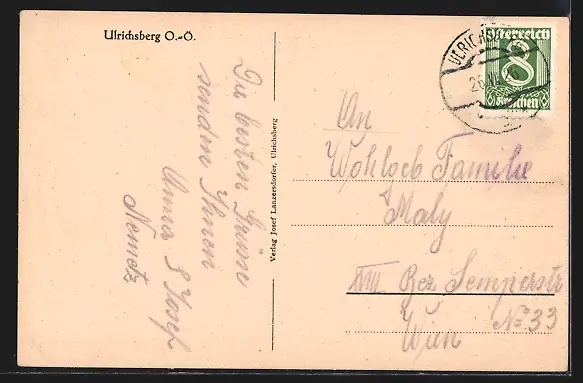 Ulrichsberg O.-Ö.
Die besten Grüsse
senden Ihnen
Anna & Josef
Nemetz
Verlag Josef Lanzersdorfer, Ulrichsberg
Österreich
8
Groschen
An
Wohlgeb Familie
Maly
Bez Semperstr
No. 33
Wien